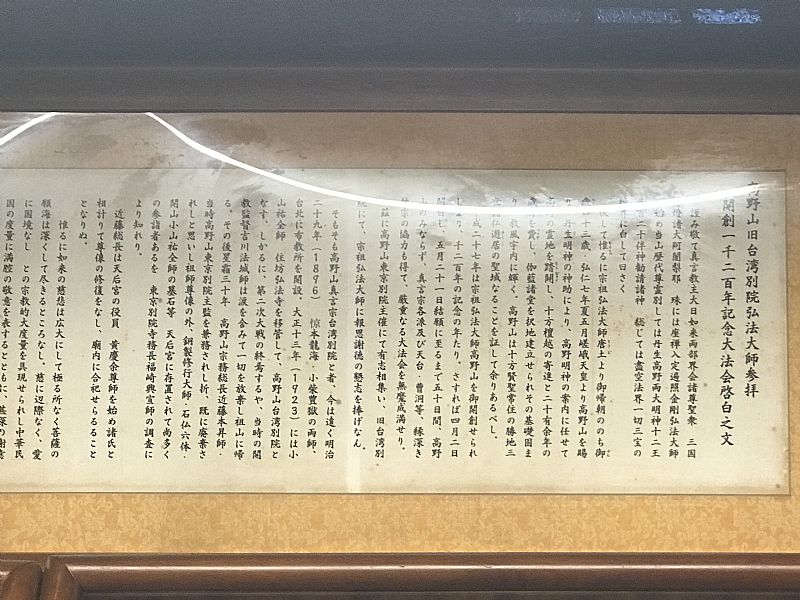 高野山旧台湾別院弘法大師参拝
開創一千二百年記念大法会啓白之文
謹み敬て真言教主大日如来両部界会諸尊聖衆 三国
殊には座禅入定遍照金剛弘法大師
当山歴代尊霊別しては丹生高野両大明神十二王
子百二十伴神勧請諸神 総じては盡空法界一切三宝の
境界に白して曰さく
伏して惟るに宗祖弘法大師唐土より御帰朝ののち御
歳四十三歳・弘仁七年夏五月嵯峨天皇より高野山を賜
り、丹生明神の神助により、高野明神の案内に任せて
の霊地を踏開し、十方檀越の寄進と二十有余年の
歳月を費し、伽藍諸堂を択地建立せられその基礎固ま
り、教風宇内に輝く。高野山は十方賢聖常住の勝地三
世諸仏遊居の聖域なることを証して余りあるべし。
平成二十七年は宗祖弘法大師高野山を御開創せられ
しより、一千二百年の記念の年にあたり、さすれば四月二日
開白し、五月二十一日結願に至るまで五十日間、高野
山のみならず、真言宗各派及び天台・曹洞等、縁深き
他宗の協力も得て、厳重なる大法会を無魔成満せり。
茲に高野山東京別院主催にて有志相集い、旧台湾別
院にて、宗祖弘法大師に報恩謝徳の懇志を捧げなん。
そもそも高野山真言宗台湾別院と者、今は遠く明治
二十九年(1896) 椋本龍海・小柴豊嶽の両師、
台北に布教所を開設、大正十二年(1923)には小
山祐全師 住坊弘法寺を移管して、高野山台湾別院と
なす。しかるに、第二次大戦の終焉するや、当時の開
教監督吉川法城師は涙を含みて一切を放棄し祖山に帰
る。その後星霜三十年 高野山宗務総長近藤本昇師、
当時高野山東京別院主監を兼務されし折、既に廃棄さ
れしと思いし祖師尊像の外、銅製修行大師・石仏六体・
開山小山祐全師の墓石等 天后宮に存置されて尚多く
の参詣者あるを 東京別院寺務長福崎興宣師の調査に
より知れり。
近藤総長は天后宮の役員 黄慶余尊師を始め諸氏と
相計りて尊像の修復をなし、廟内に合祀せらるること
となりぬ。
惟るに如来の慈悲は広大にして極る所なく菩薩の
願海は深くして尽きるところなし。慈に辺際なく、愛
に国境なし との宗教的大度量を具現せられし中華民
国の度量に満腔の敬意を表するとともに、甚深の謝意